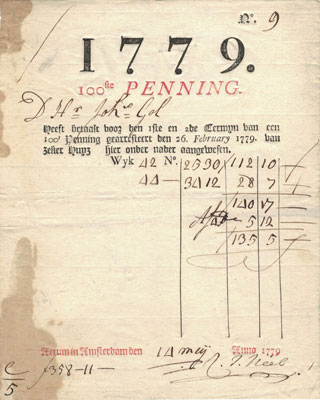 No. 9
1779.
100ste PENNING.
D Hr Johs Gol
Heeft betaalt voor den 1ste en 2de Termyn van een
100e Penning gearresteert den 26. February 1779. van
zeker Huyz hier onder nader aangewesen.
Wyk 42 No. 2530 112 10
44 — 3412 28 7
140 17
5 12
135 5
Actum in Amsterdam den 14 meij Anno 1779
C/5 f358-11-